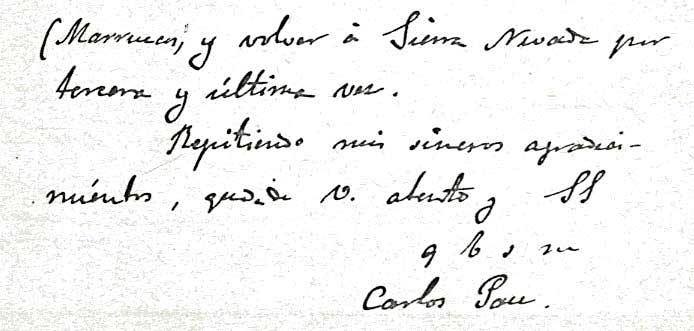 (Marruecos, y volver á Sierra Nevada por
tercera y última vez.
Repitiendo mis sinceros agradeci-
mientos, queda de V. atento y SS
q b s m
Carlos Pau.